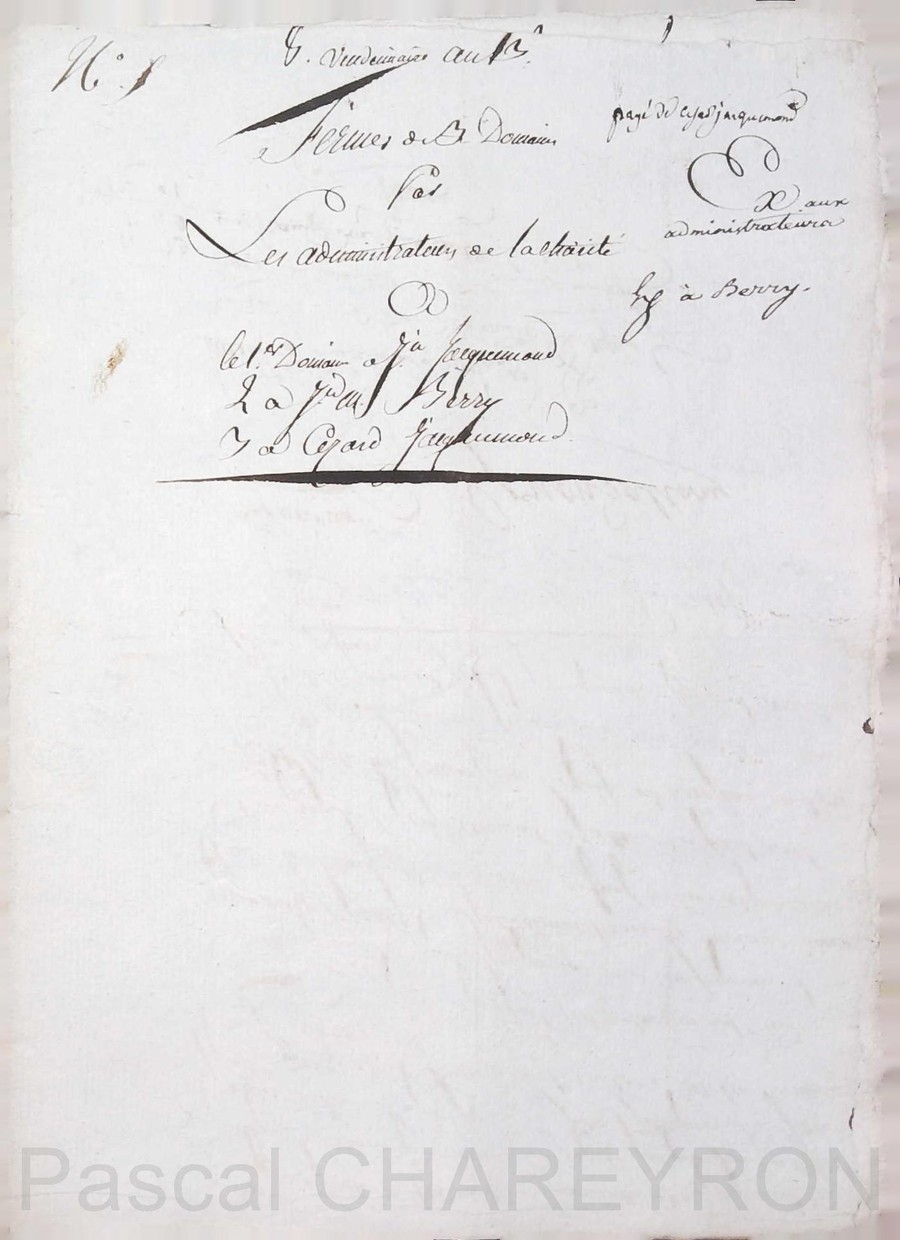 N.°
8. Vendemiaire an 13.
Fermes de 3 Domaines
Par
Les administrateurs de la charité
le 1.er Domaine a Jacquemond
2 a Berry
3 a Cezard Jacquemond
payé de Cezar jacquemond
Ex aux
administrateurs
Ex à Berry.
Pascal CHAREYRON